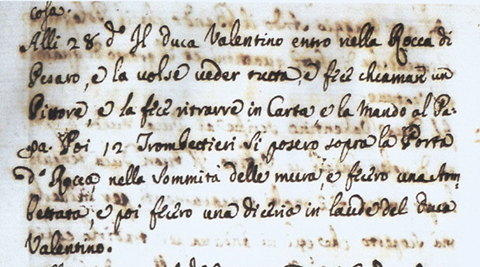 cosa.
Alli 28 d.º Il Duca Valentino entrò nella Rocca di
Pesaro, e la volse veder tutta, e fece chiamar un
Pittore, e la fece ritrarre in Carta e la mandò al Pa-
pa. Poi 12 Trombettieri si posero sopra la Porta
d.ª Rocca, nella Sommità delle mura, e fecero una trom
bettata, e poi fecero una diceria in laude del Duca
Valentino.